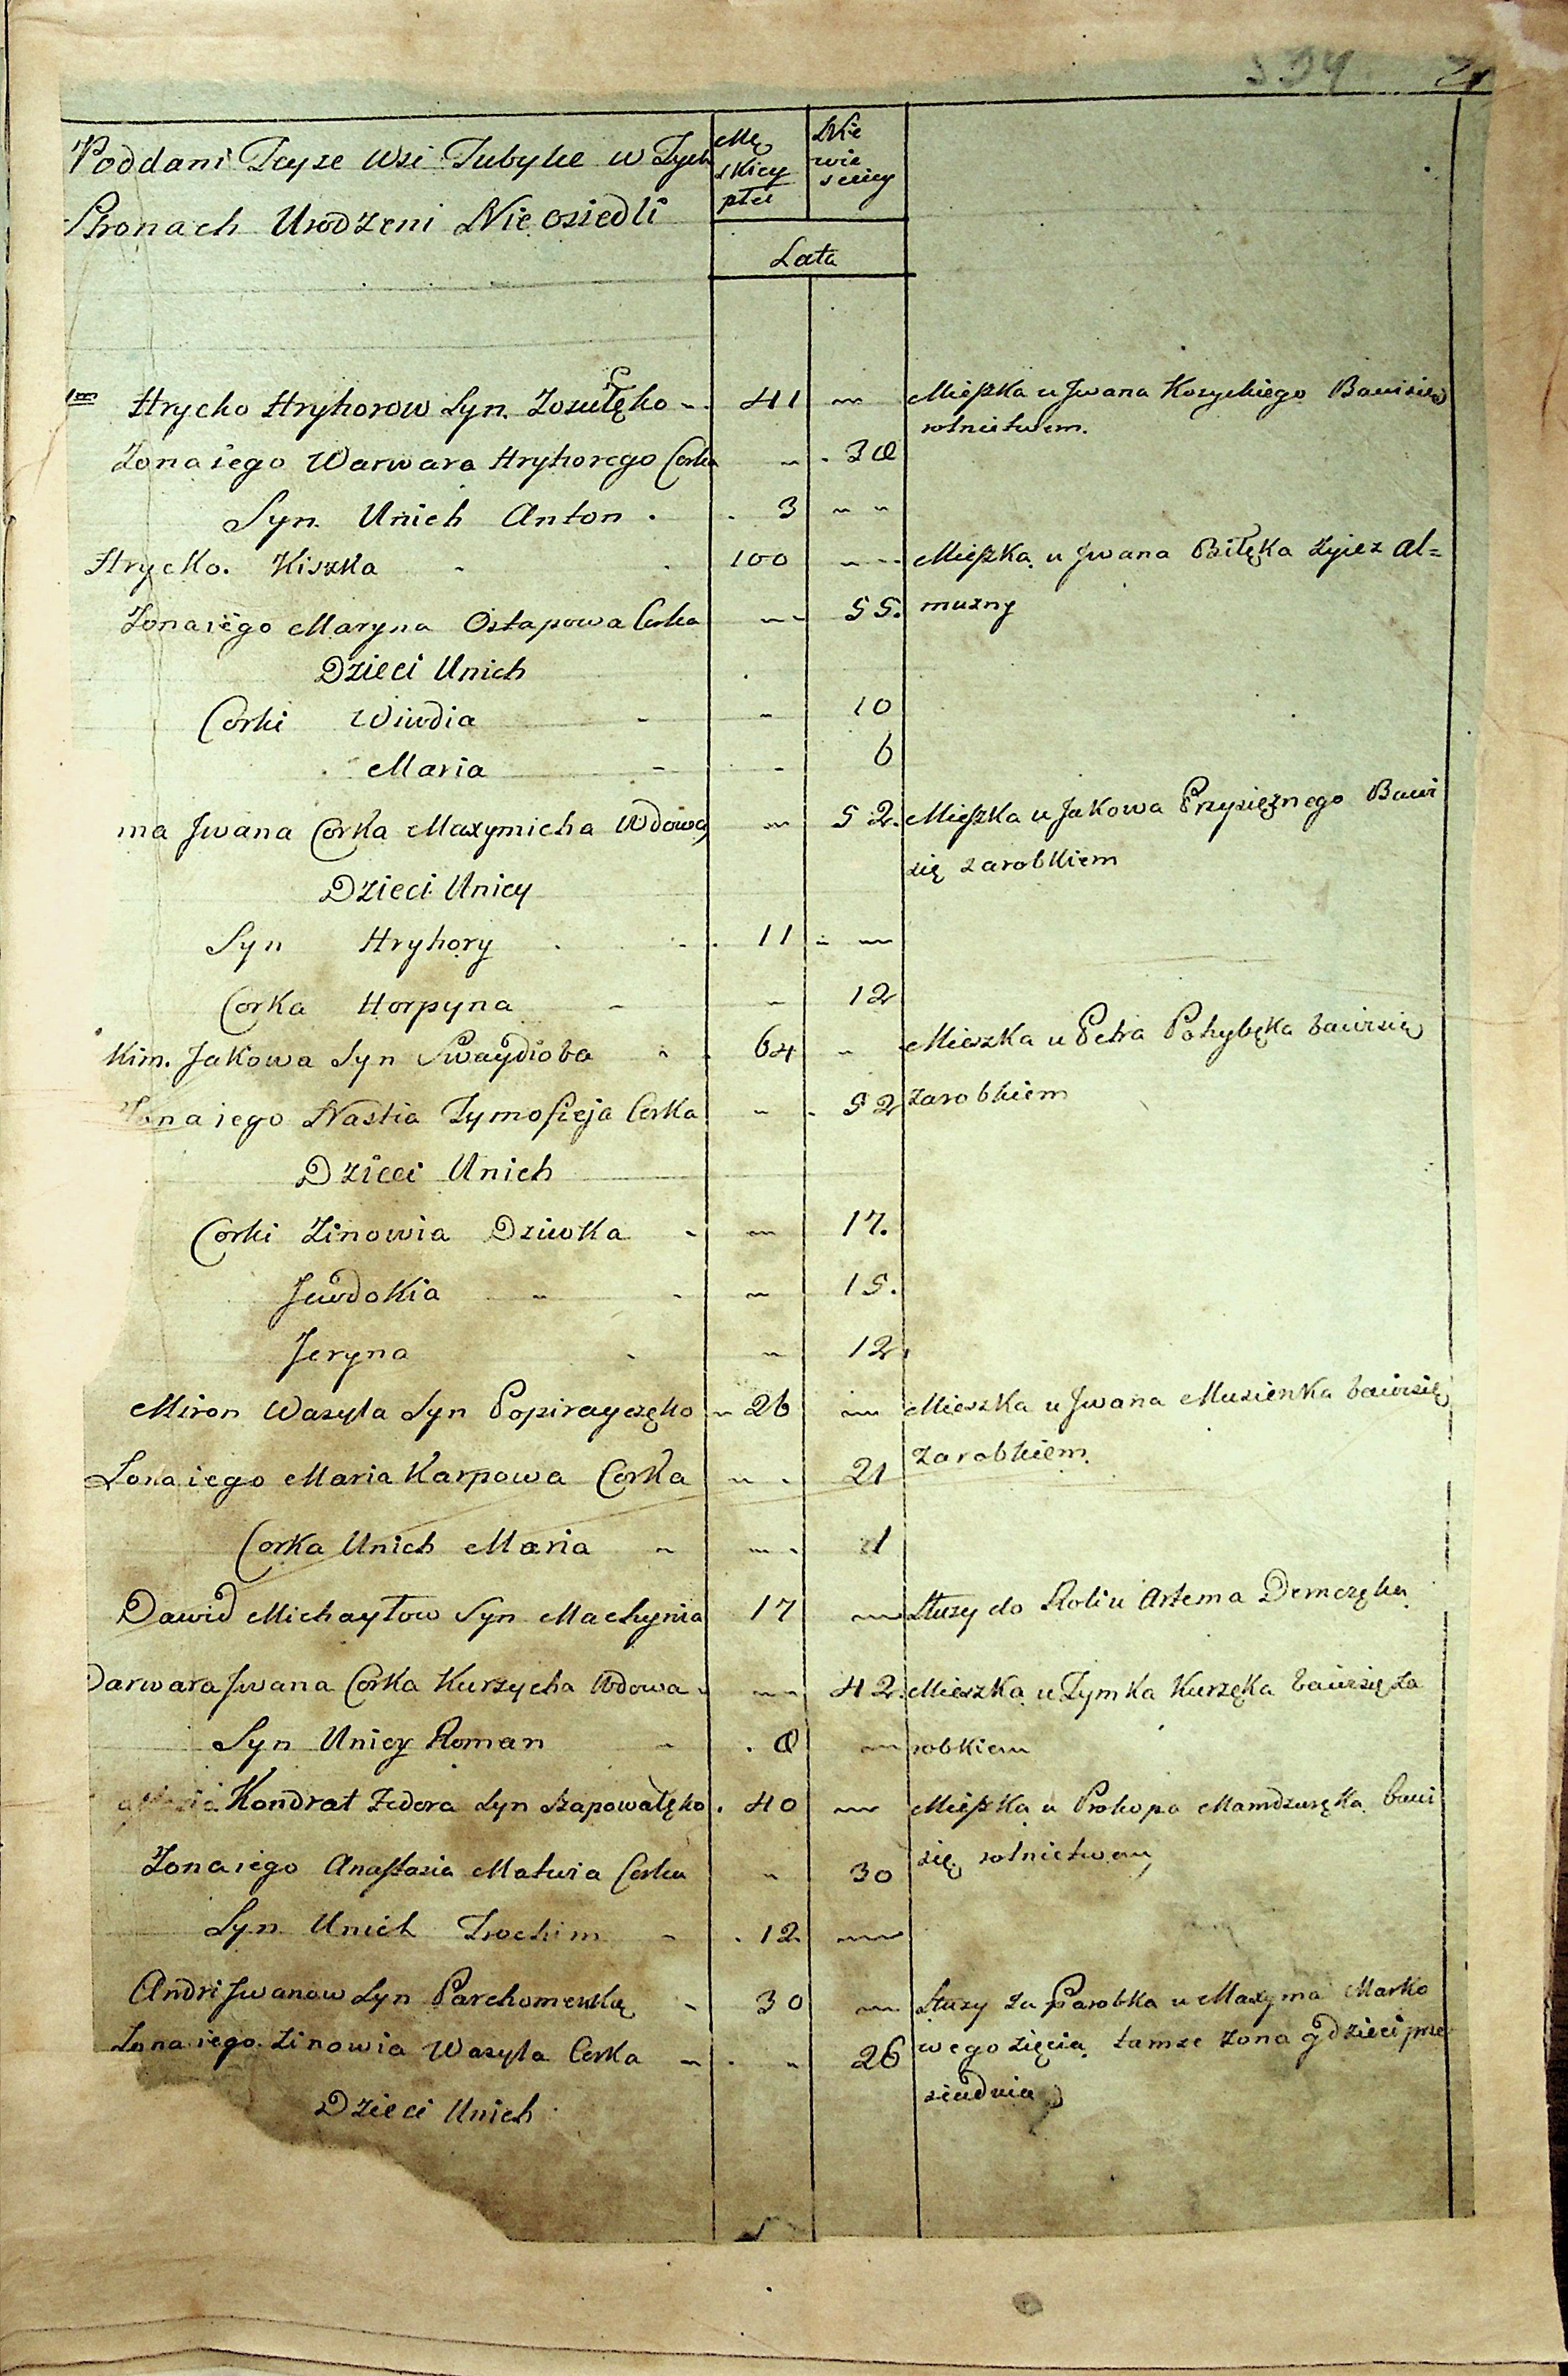 534
Poddani Teyze Wsi Tubylce w Tych
Stronach Urodzeni Nie osiedli
Mę
skiey
płci
Nie
wie
sciey
Lata
1m Hrycko Hryhorow Syn Zosułęko 41 Mieszka u Jwana Kosyckiego Bawi się
rolnictwem.
Zona iego Warwara Hryhorego Corka 30
Syn Unich Anton 3
Hrycko Kiszka 100 Mieszka u Jwana Biłęka żyie z al=
Zona iego Maryna Ostapowa Corka 55. mużny
Dzieci Unich
Corki Wiwdia 10
Maria 6
ma Jwana Corka Maxymicha Wdowa 52. Mieszka u Jakowa Przysięznego Bawi
się zarobkiem
Dzieci Unicy
Syn Hryhory 11
Corka Horpyna 12
Kim. Jakowa Syn Swaydioba 64 Mieszka u Petra Pohybęka bawi się
Zona iego Nastia Tymofieja Corka 52 zarobkiem
Dzieci Unich
Corki Zinowia Dziwka 17.
Jewdokia 15.
Jeryna 12.
Miron Wasyla Syn Popirayczęko 26 Mieszka u Jwana Musienka bawi się
zarobkiem.
Zona iego Maria Karpowa Corka 21
Corka Unich Maria 1
Dawid Michayłow Syn Machynia 17 Służy do Roli u Artema Demczęka
Warwara Jwana Corka Kurzycha Wdowa 42. Mieszka u Tymka Kurzęka bawi się za
Syn Unicy Roman 8 robkiem
Kondrat Fedora Syn Szapowałęko 40 Mieszka u Prokopa Mamdzuręka bawi
się rolnictwem
Zona iego Anastazia Matwia Corka 30
Syn Unich Trochim 12
Andri Jwanow Syn Parchomenka 30 Służy za Parobka u Maxyma Marko
Zona iego Zinowia Wasyla Corka 26 wego zięcia tamże zona y dzieci prze
siaduią
Dzieci Unich